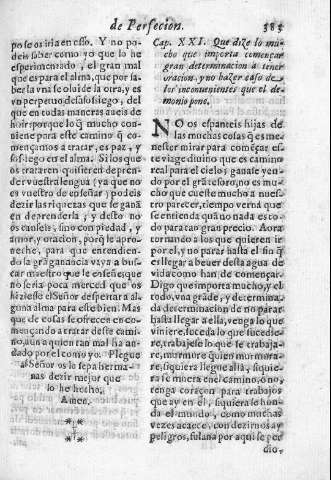 de Perfecion. 385
po se os iria en esso. Y no po-
deis saber como yo que lo he
esperimentado, el gran mal
que es para el alma, que por sa-
ber la vna se olui de la otra, y es
vn perpetuo desasosiego, del
que en todas maneras aueis de
huir: porque lo q̃ mucho con-
uiene para este camino q̃ co-
mençamos a tratar, es paz, y
sossiego en el alma. Si los que
os trataren quisieren depren-
der vuestra lengua (ya que no
es vuestro de enseñar) podeis
dezir las riquezas que se ganã
en deprenderla; y desto no
os canseis, sino con piedad, y
amor, y oracion, porq̃ le apro-
ueche, para que entendien-
do la grã ganãcia vaya a bus-
car maestro que le enseñe, que
no seria poca merced que os
hiziesse el Señor despertar a al-
guna alma para este bien. Mas
que de cosas se ofrecen en co-
mençando a tratar deste cami-
no, aun a quien tan mal ha an-
dado por el como yo. Plegue
al Señor os lo sepa herma-
nas dezir mejor que
lo he hecho,
Amen.
Cap. XXI. Que dize lo mu-
cho que importa començar
gran determinacion a tener
oracion, y no hazer caso de
los inconuenientes que el de-
monio pone.
NO os espanteis hijas de
las muchas cosas q̃ es me-
nester mirar para começar es-
te viage diuino que es camino
real para el cielo; ganase yen-
do por el grã tesoro, no es mu-
cho que cueste mucho a nues-
tro parecer, tiempo verna que
se entienda quã no nada es to-
do para tan gran precio. Aora
tornando a los que quieren ir
por el, y no parar hasta el fin q̃
es llegar a beuer desta agua de
vida como han de començar.
Digo que importa mucho, y el
todo, vna grãde, y determina-
da determinacion de no parar
hasta llegar a ella, venga lo que
viniere, suceda lo que sucedie-
re, trabajese lo que se trabaja-
re, murmure quien murmora-
re, siquiera llegue allà, siquie-
ra se muera en el camino, ò no
tenga coraçon para trabajos
que ay en èl, siquiera se hun-
da el mundo, como muchas
vezes acaece, con dezirnos ay
peligros, fulana por aqui se per-
dio,